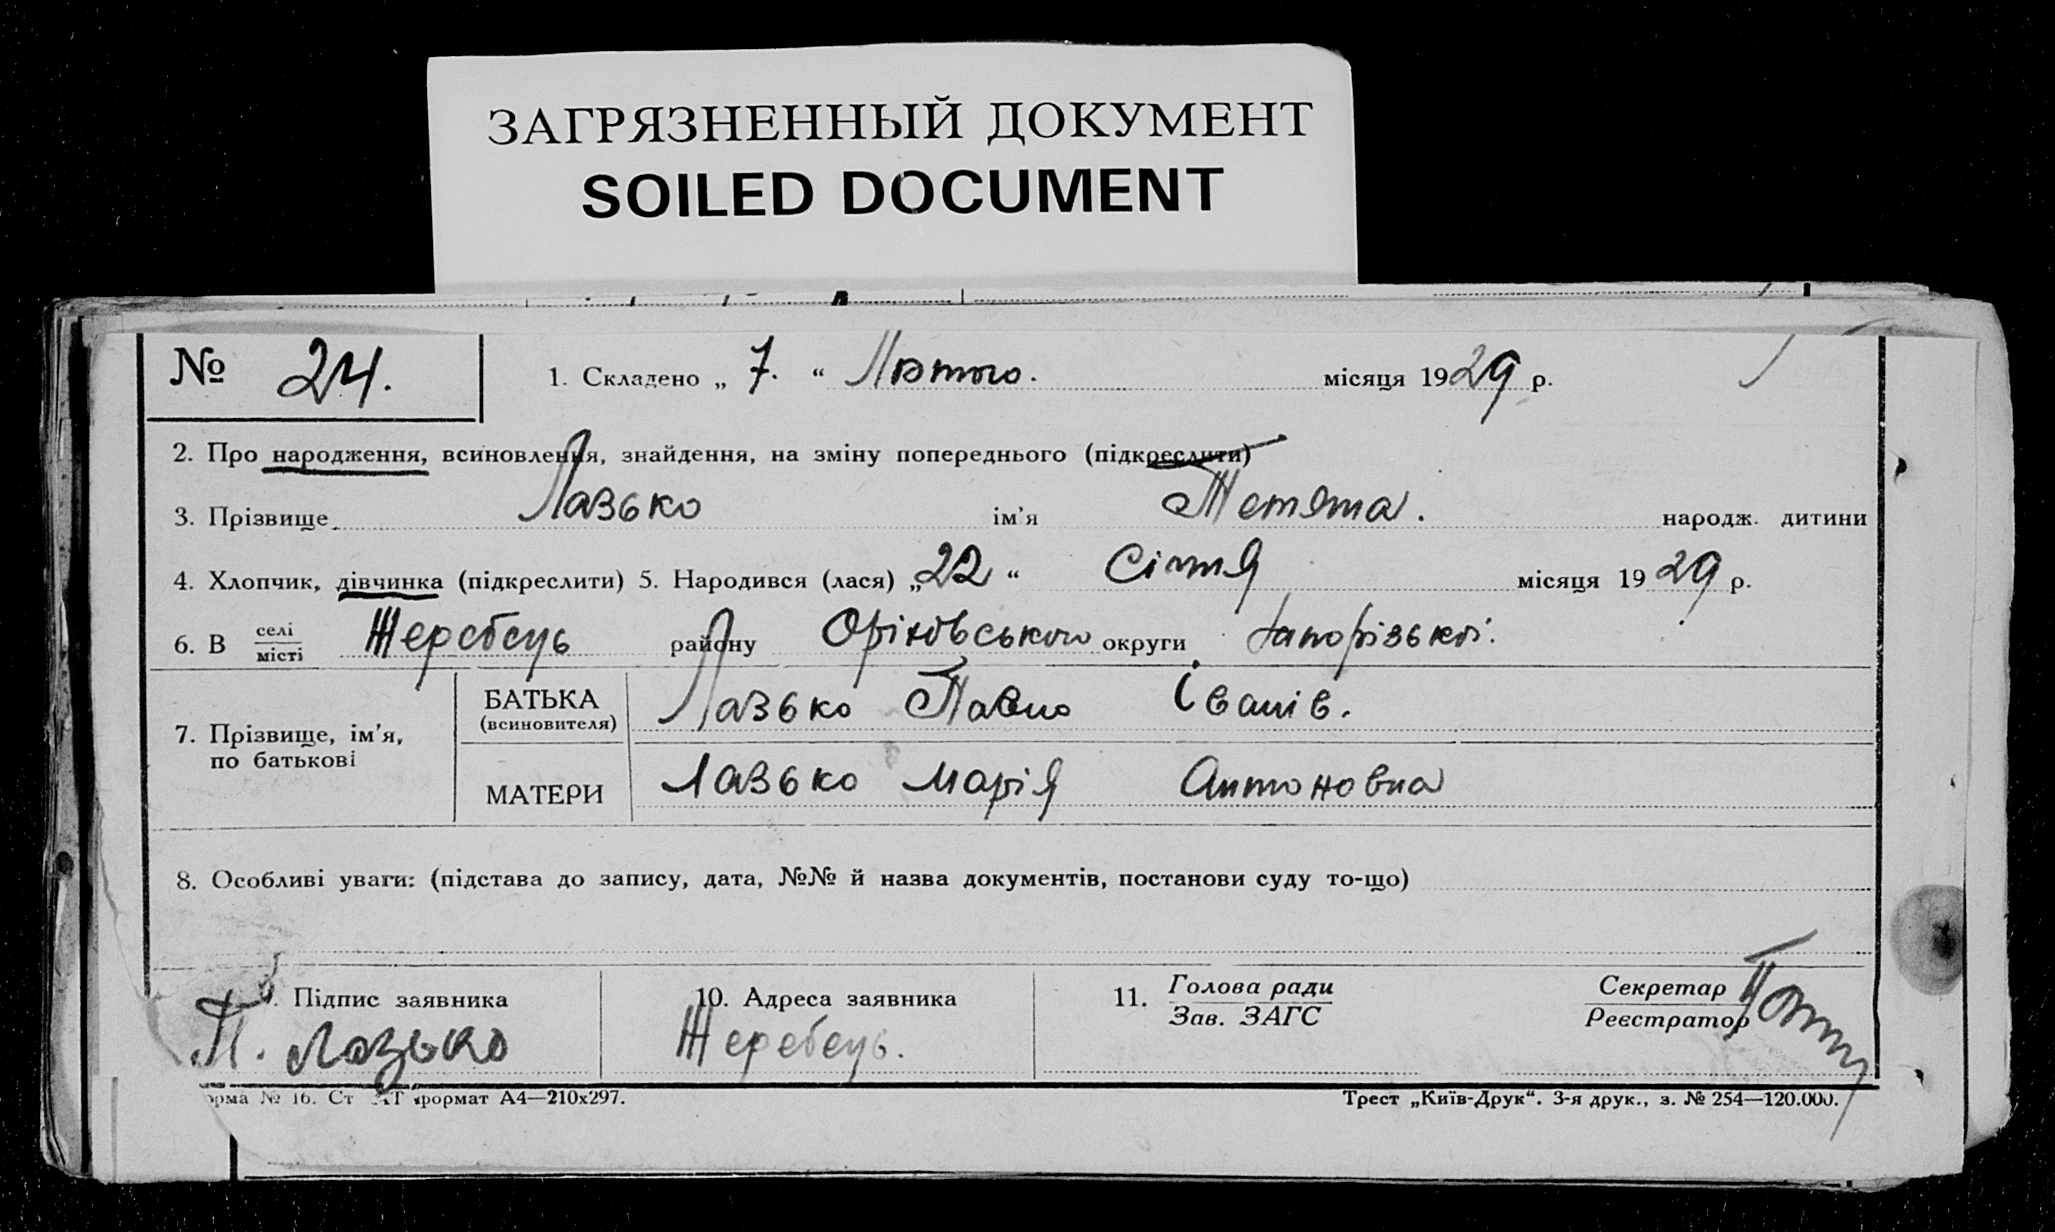 ЗАГРЯЗНЕННЫЙ ДОКУМЕНТ
SOILED DOCUMENT
№ 24. 1. Складено „ 7. “ Лютого. місяця 1929 р.
2. Про народження, всиновлення, знайдення, на зміну попереднього (підкреслити)
3. Прізвище Лазько ім'я Тетяна. народж. дитини
4. Хлопчик, дівчинка (підкреслити) 5. Народився (лася) „22“ Січня місяця 1929 р.
6. В селі місті Жеребець району Оріхівського округи Запорізької.
7. Прізвище, ім'я, по батькові
БАТЬКА (всиновителя) Лазько Павло Іванів.
МАТЕРИ Лазько Марія Антоновна
8. Особливі уваги: (підстава до запису, дата, №№ й назва документів, постанови суду то-що)
Підпис заявника 10. Адреса заявника 11. Голова ради Секретар
Зав. ЗАГС Реєстратор
П. Лазько Жеребець.
орма № 16. Ст формат А4—210х297. Трест „Київ-Друк“. 3-я друк., з. № 254—120.000.